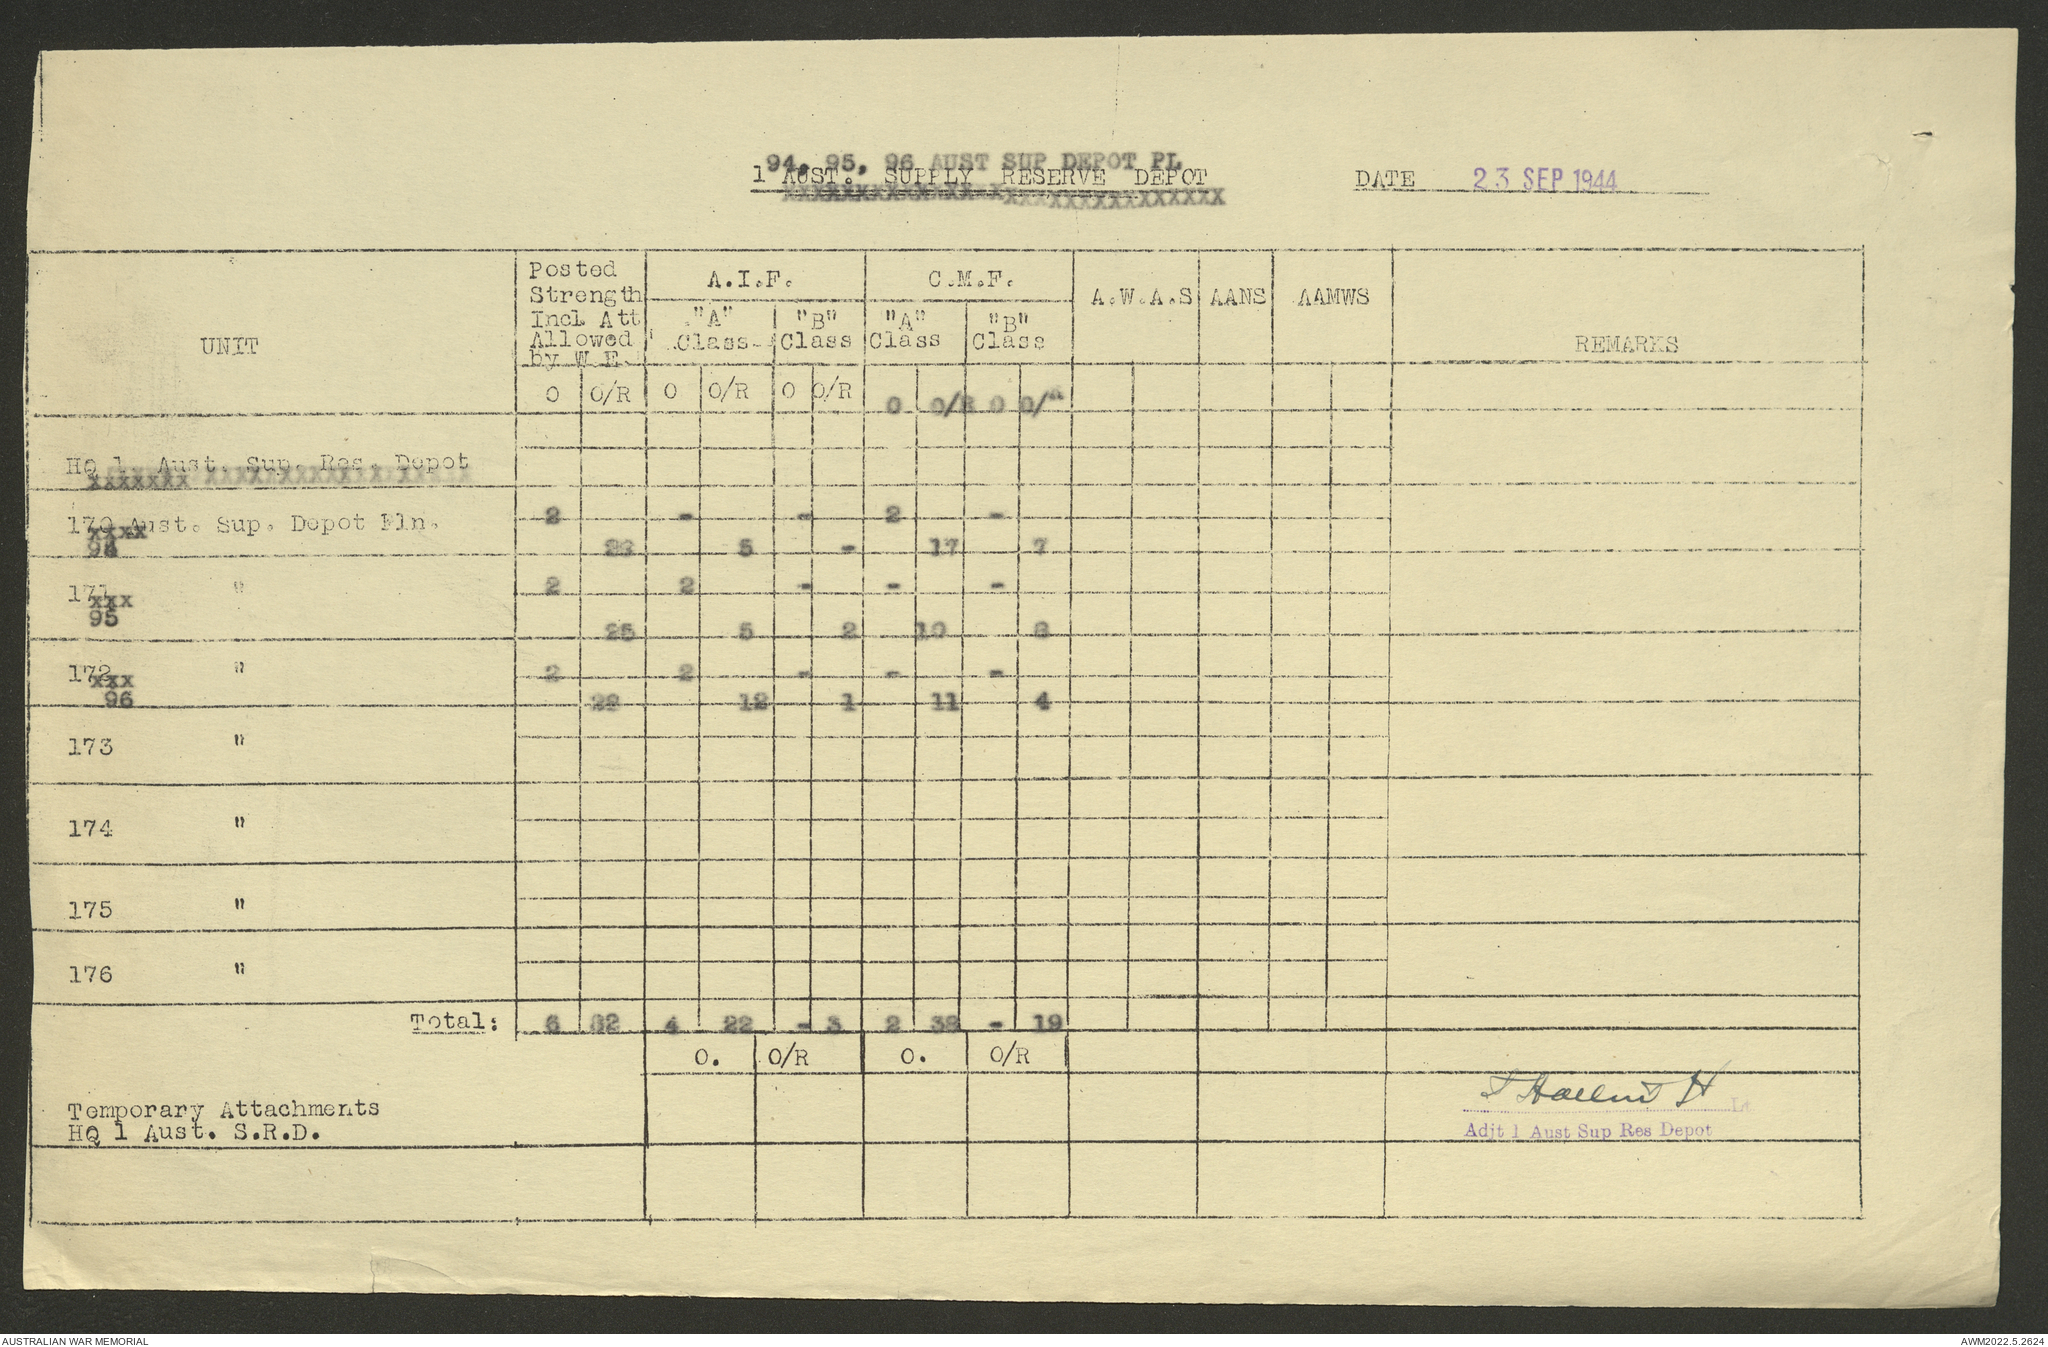 94, 95, 96 AUST SUP DEPOT PL
1 AUST. SUPPLY RESERVE DEPOT DATE 23 SEP 1944
xxxxxxxxxxxxxxxxxxxxxxxxxxxxxx
UNIT
Posted
Strength
Incl Att
Allowed
by W.E.
A.I.F. C.M.F. A.W.A.S AANS AAMWS REMARKS
"A" "B" "A" "B"
Class Class Class Class
O O/R O O/R O O/R O O/R O O/R
HQ 1 Aust. Sup. Res. Depot
170 Aust. Sup. Depot Pln. 2 - - 2 -
xxxx
94 5 - 17 7
171 " 2 2 - - -
xxx
95 25 5 2 10 8
172 " 2 2 - - -
xxx
96 28 12 1 11 4
173 "
174 "
175 "
176 "
Total: 6 82 4 22 - 3 2 38 - 19
O. O/R O. O/R
Temporary Attachments
HQ 1 Aust. S.R.D.
Lt
Adjt 1 Aust Sup Res Depot
AUSTRALIAN WAR MEMORIAL AWM2022.5.2624